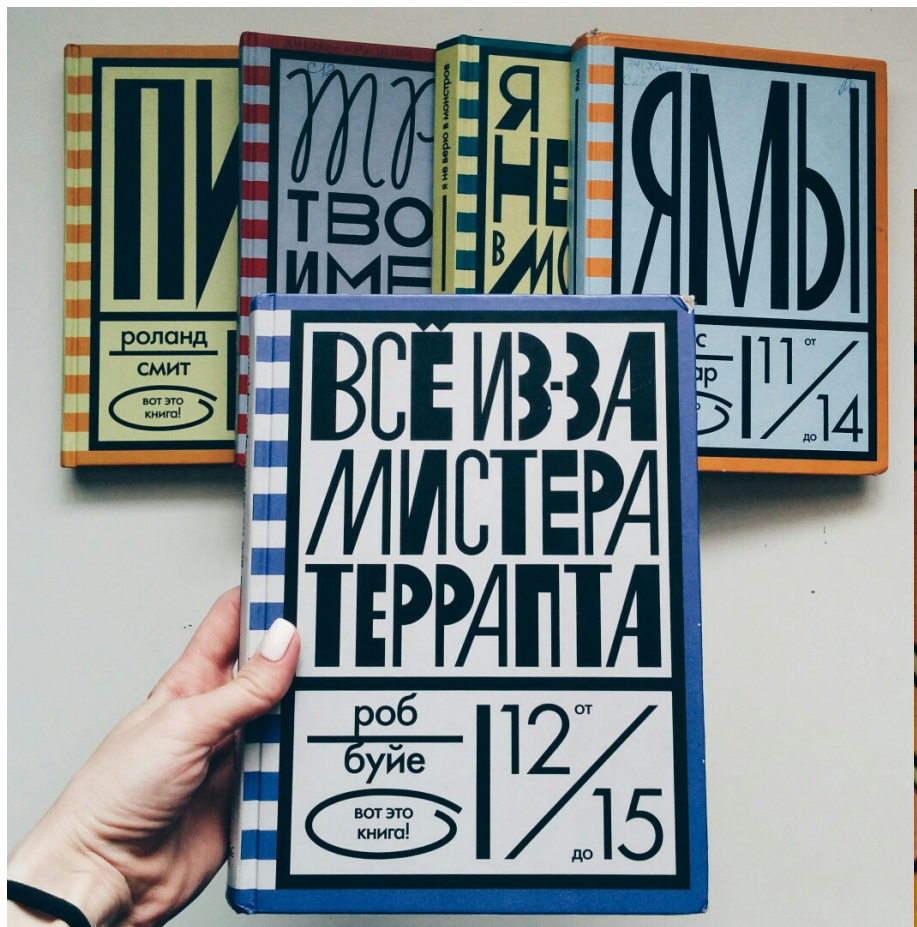 ПИ
роланд
смит
вот это
книга!
тр
ТВО
ИМЕ
я не верю в монстров
Я
НЕ
В МО
ямы
ЯМЫ
с
ар
11 от
до 14
ВСЁ ИЗ-ЗА
МИСТЕРА
ТЕРРАПТА
роб
буйе
вот это
книга!
12 от
до 15